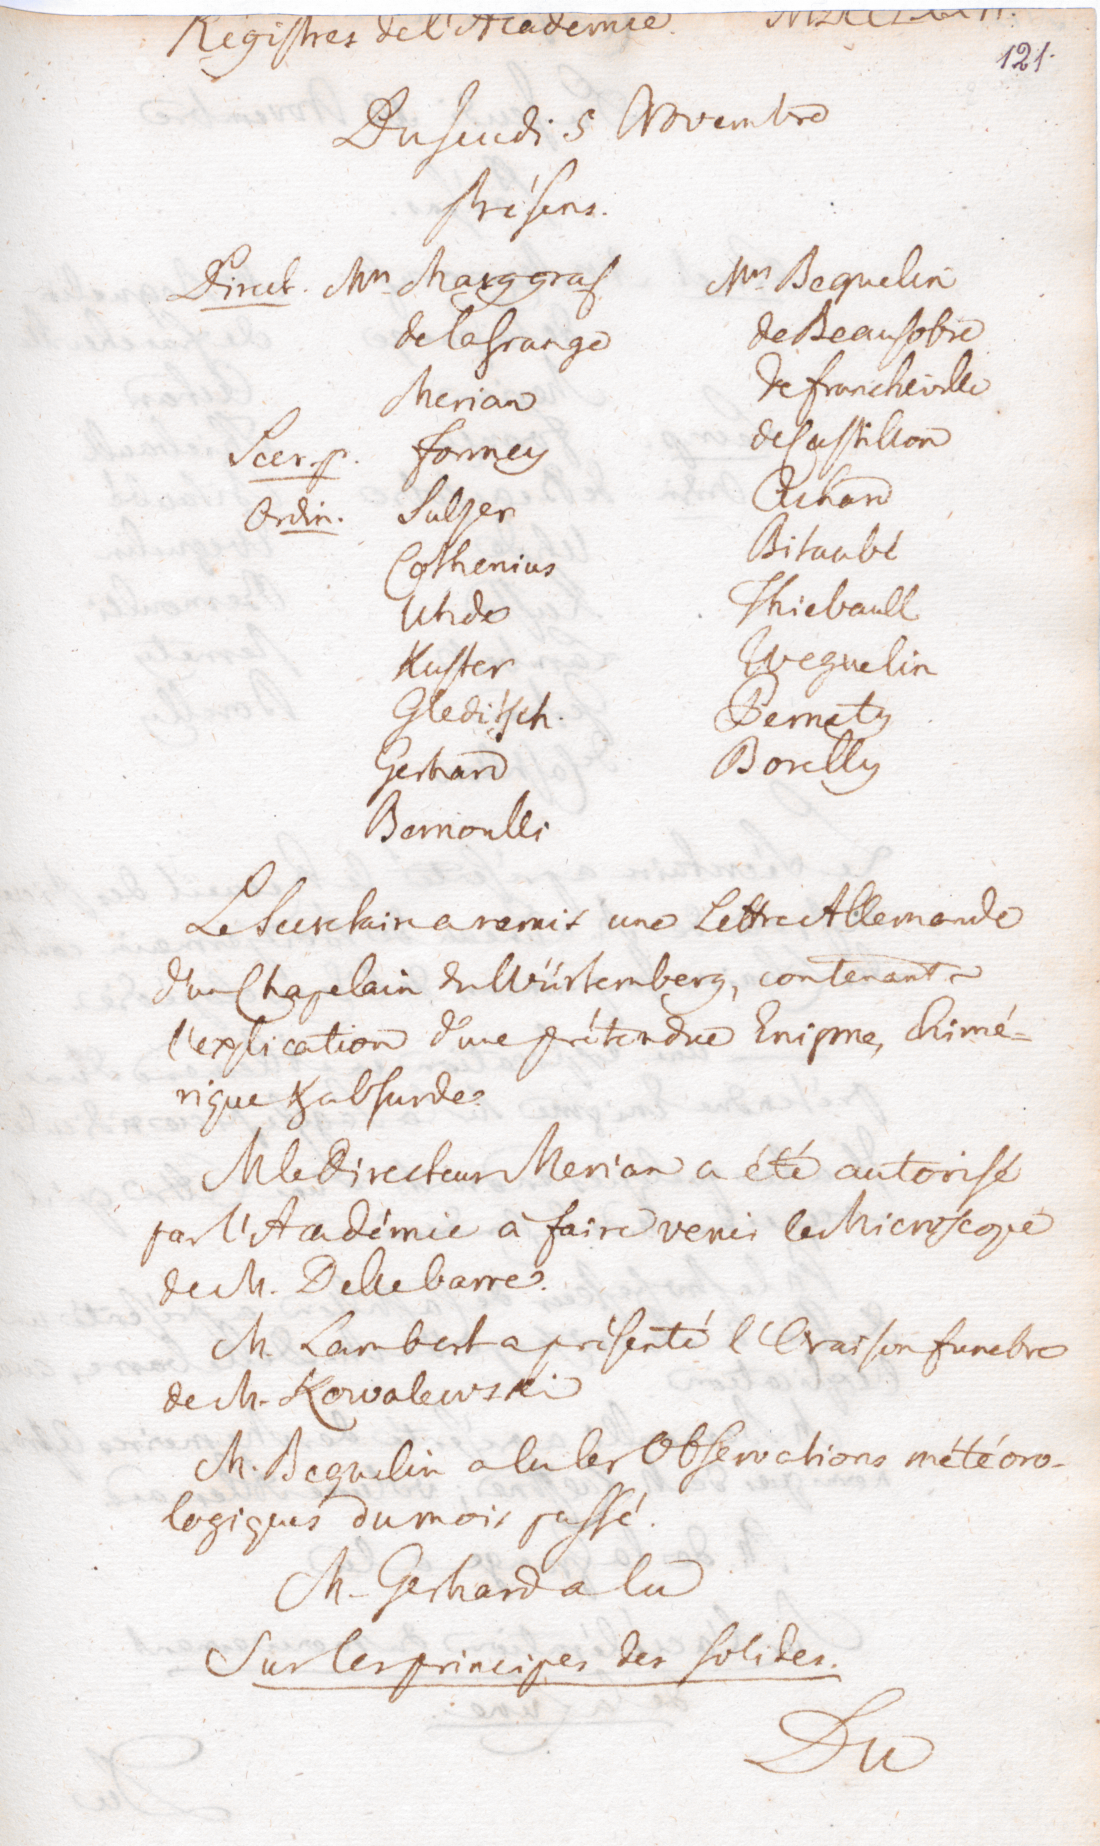 Registres de l'Academie.
121.
Du Jeudi 5 Novembre
Présens.
Direct. Mrs. Marggraf
de la Grange
Merian
Secr. p. Formey
Ordin. Sulzer
Cothenius
Uhde
Kuster
Gleditsch.
Gerhard
Bernoulli
Mrs. Beguelin
de Beausobre
de Francheville
de Castillon
Achard
Bitaubé
Thiebault
Weguelin
Pernety
Borelly
Le Secretaire a remis une Lettre Allemande
d'un Chapelain du Würtemberg, contenant
l'explication d'une prétendue Enigme, chimé-
rique & absurde.
M le Directeur Merian a été autorisé
par l'Académie à faire venir le Microscope
de M. Dellebarre.
M. Lambert a présenté l'Oraison funebre
de M. Kowalewski
M. Beguelin a lu les Observations météoro-
logiques du mois passé.
M. Gerhard a lu
Sur les principes des solides.
Du